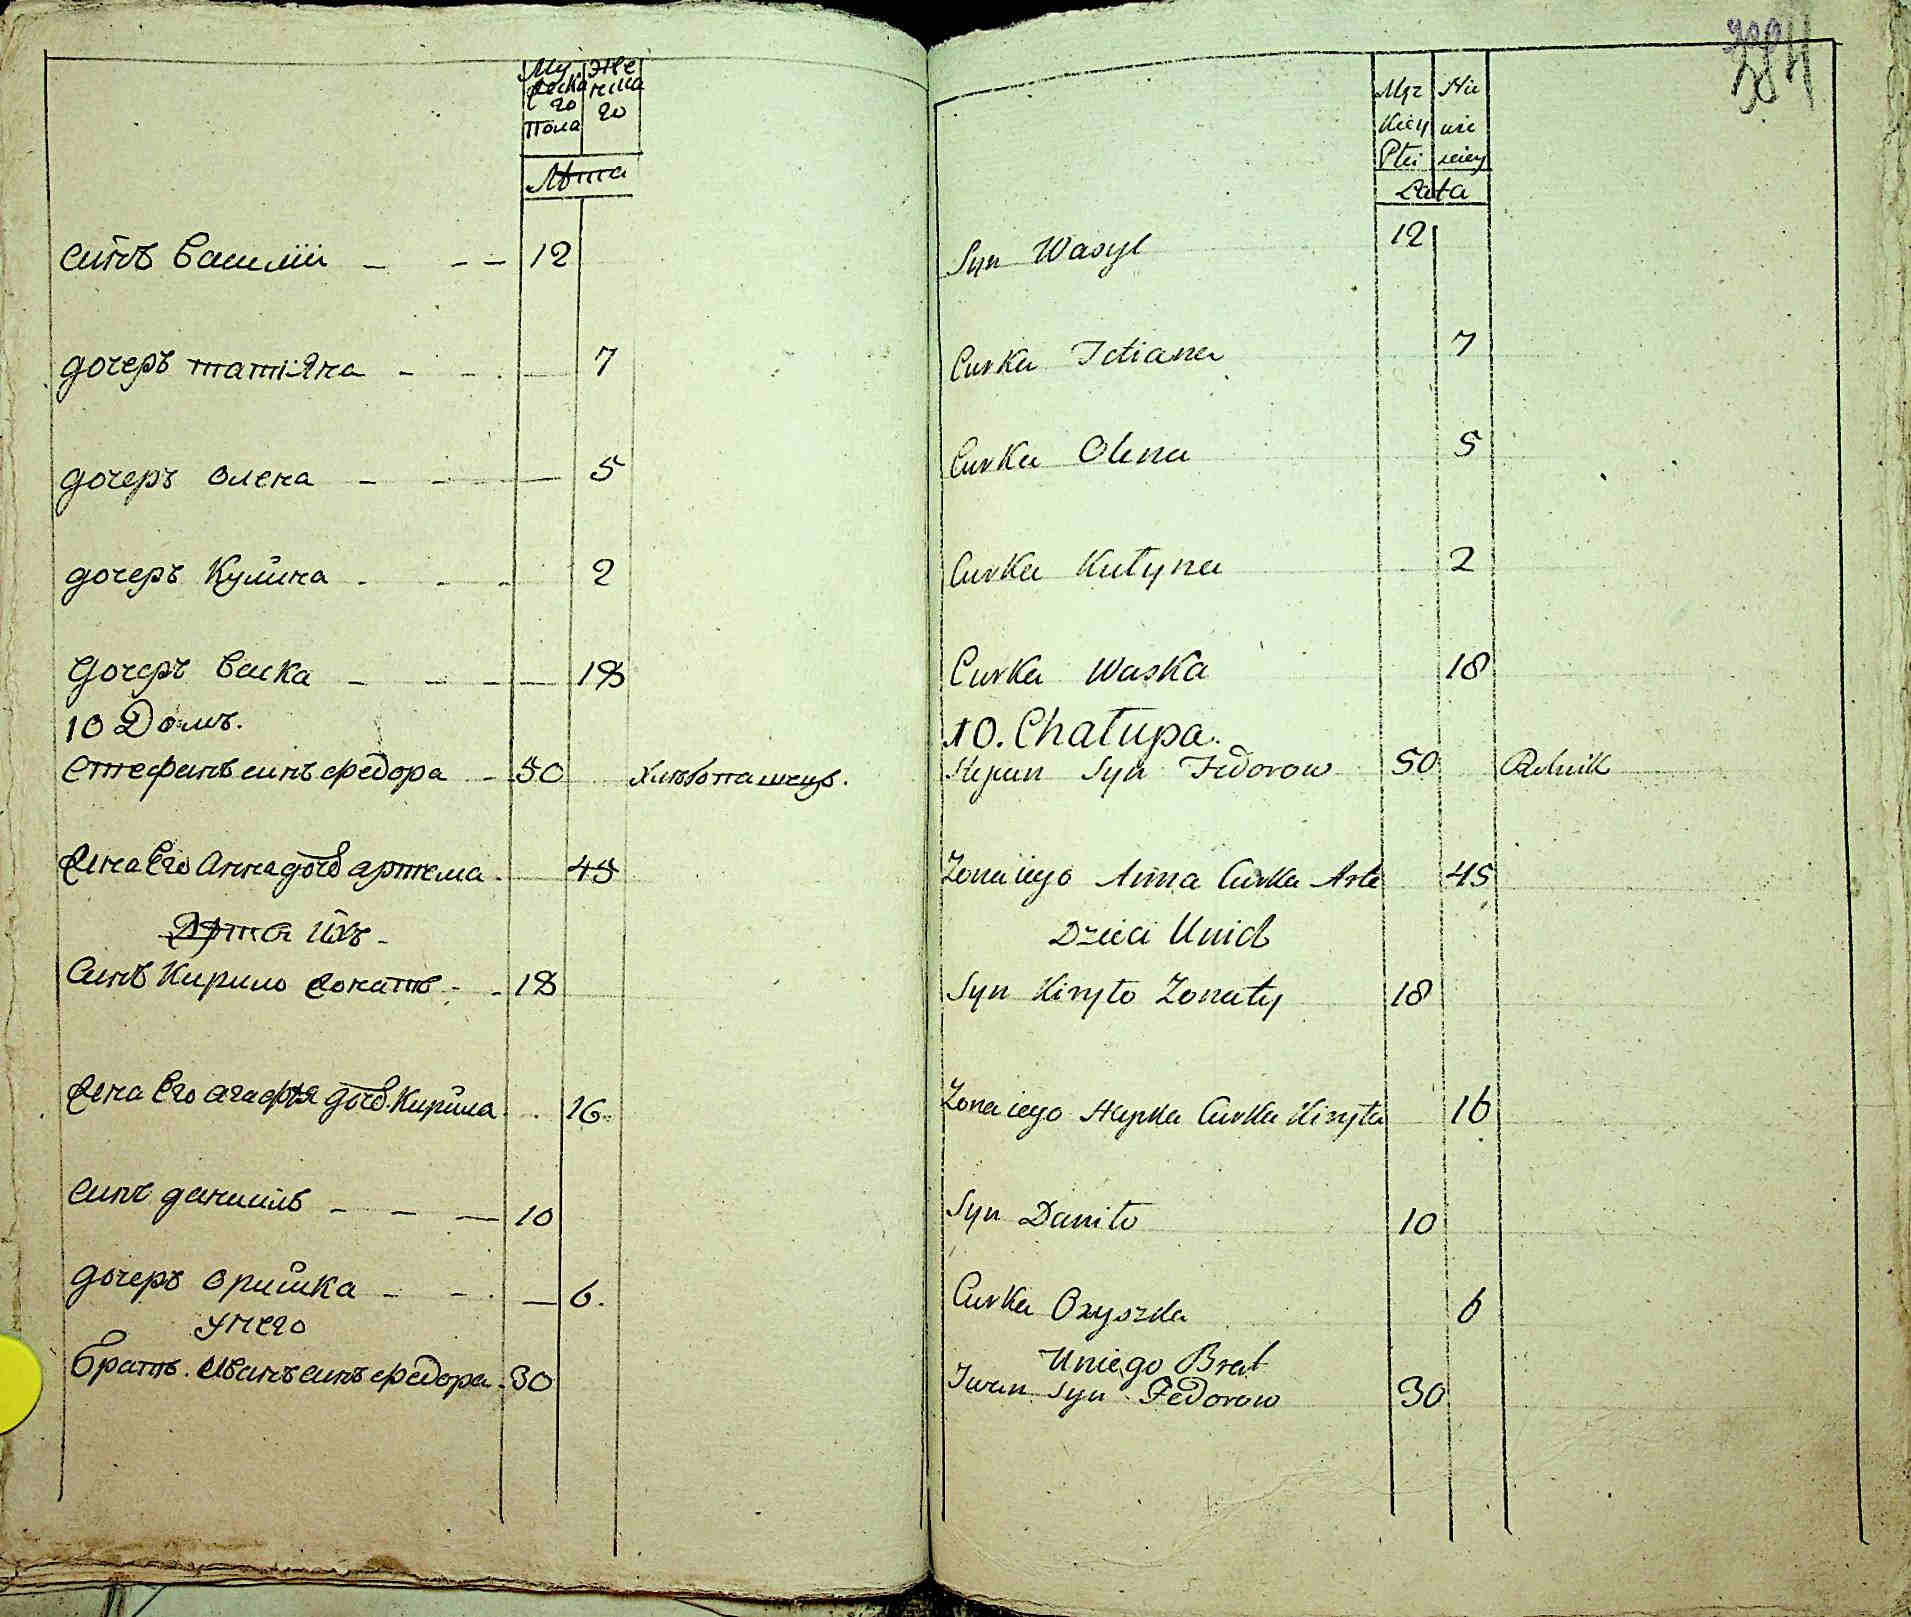 Му жеска го Пола
Же нска го
Лѣта
синъ Василій - - - 12
дочеръ татіяна - - - 7
дочеръ олена - - - 5
дочеръ Кулина - - - 2
дочеръ Васка - - - 18
10 Домъ.
Стефанъ синъ федора - 50 хлѣбопашецъ.
жена Его Анна дочь артема. 45
Дѣти ихъ -
Синъ Кирило жонатъ - - 18
жена Его агафія дочь Кирила. 16.
синъ данііилъ - - - 10
дочеръ оришка - - - 6.
у него
братъ. Иванъ синъ федора. 30
384
Męz kiey Płci
Nie wie sciey
Lata
Syn Wasyl 12
Curka Tetiana 7
Curka Olena 5
Curka Kułyna 2
Curka Waska 18
10. Chałupa.
Stepan Syn Fedorow 50 Rolnik
Zona iego Anna Curka Arte 45
Dzieci U nich
Syn Kiryło Zonaty 18
Zona iego Hapka Curka Kiryła 16
Syn Daniło 10
Curka Oryszka 6
U niego Brat
Iwan Syn Fedorow 30